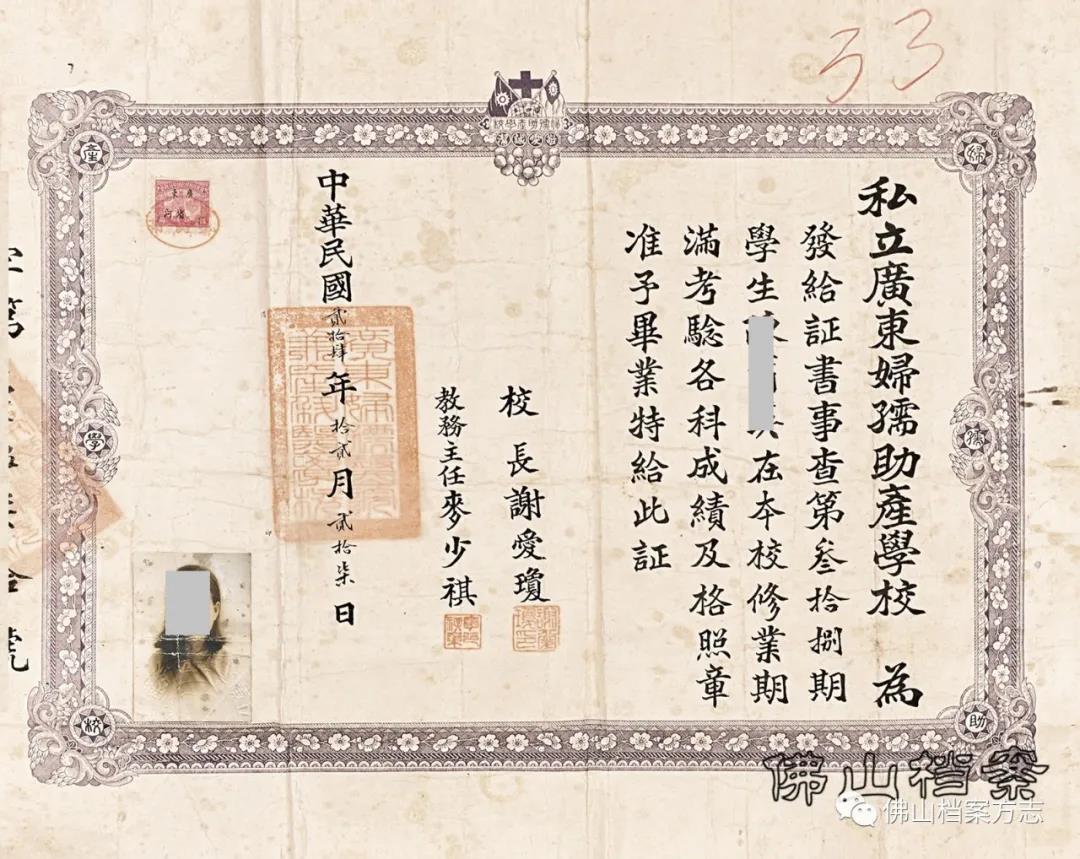 私立廣東婦孺助產學校 為
發給証書事查第叁拾捌期
學生 在本校修業期
滿考驗各科成績及格照章
准予畢業特給此証
校長謝愛瓊
教務主任麥少祺
中華民國貳拾肆年拾貳月貳拾柒日
字第 號
婦
孺
助
產
學
校
53
佛山档案
佛山档案方志